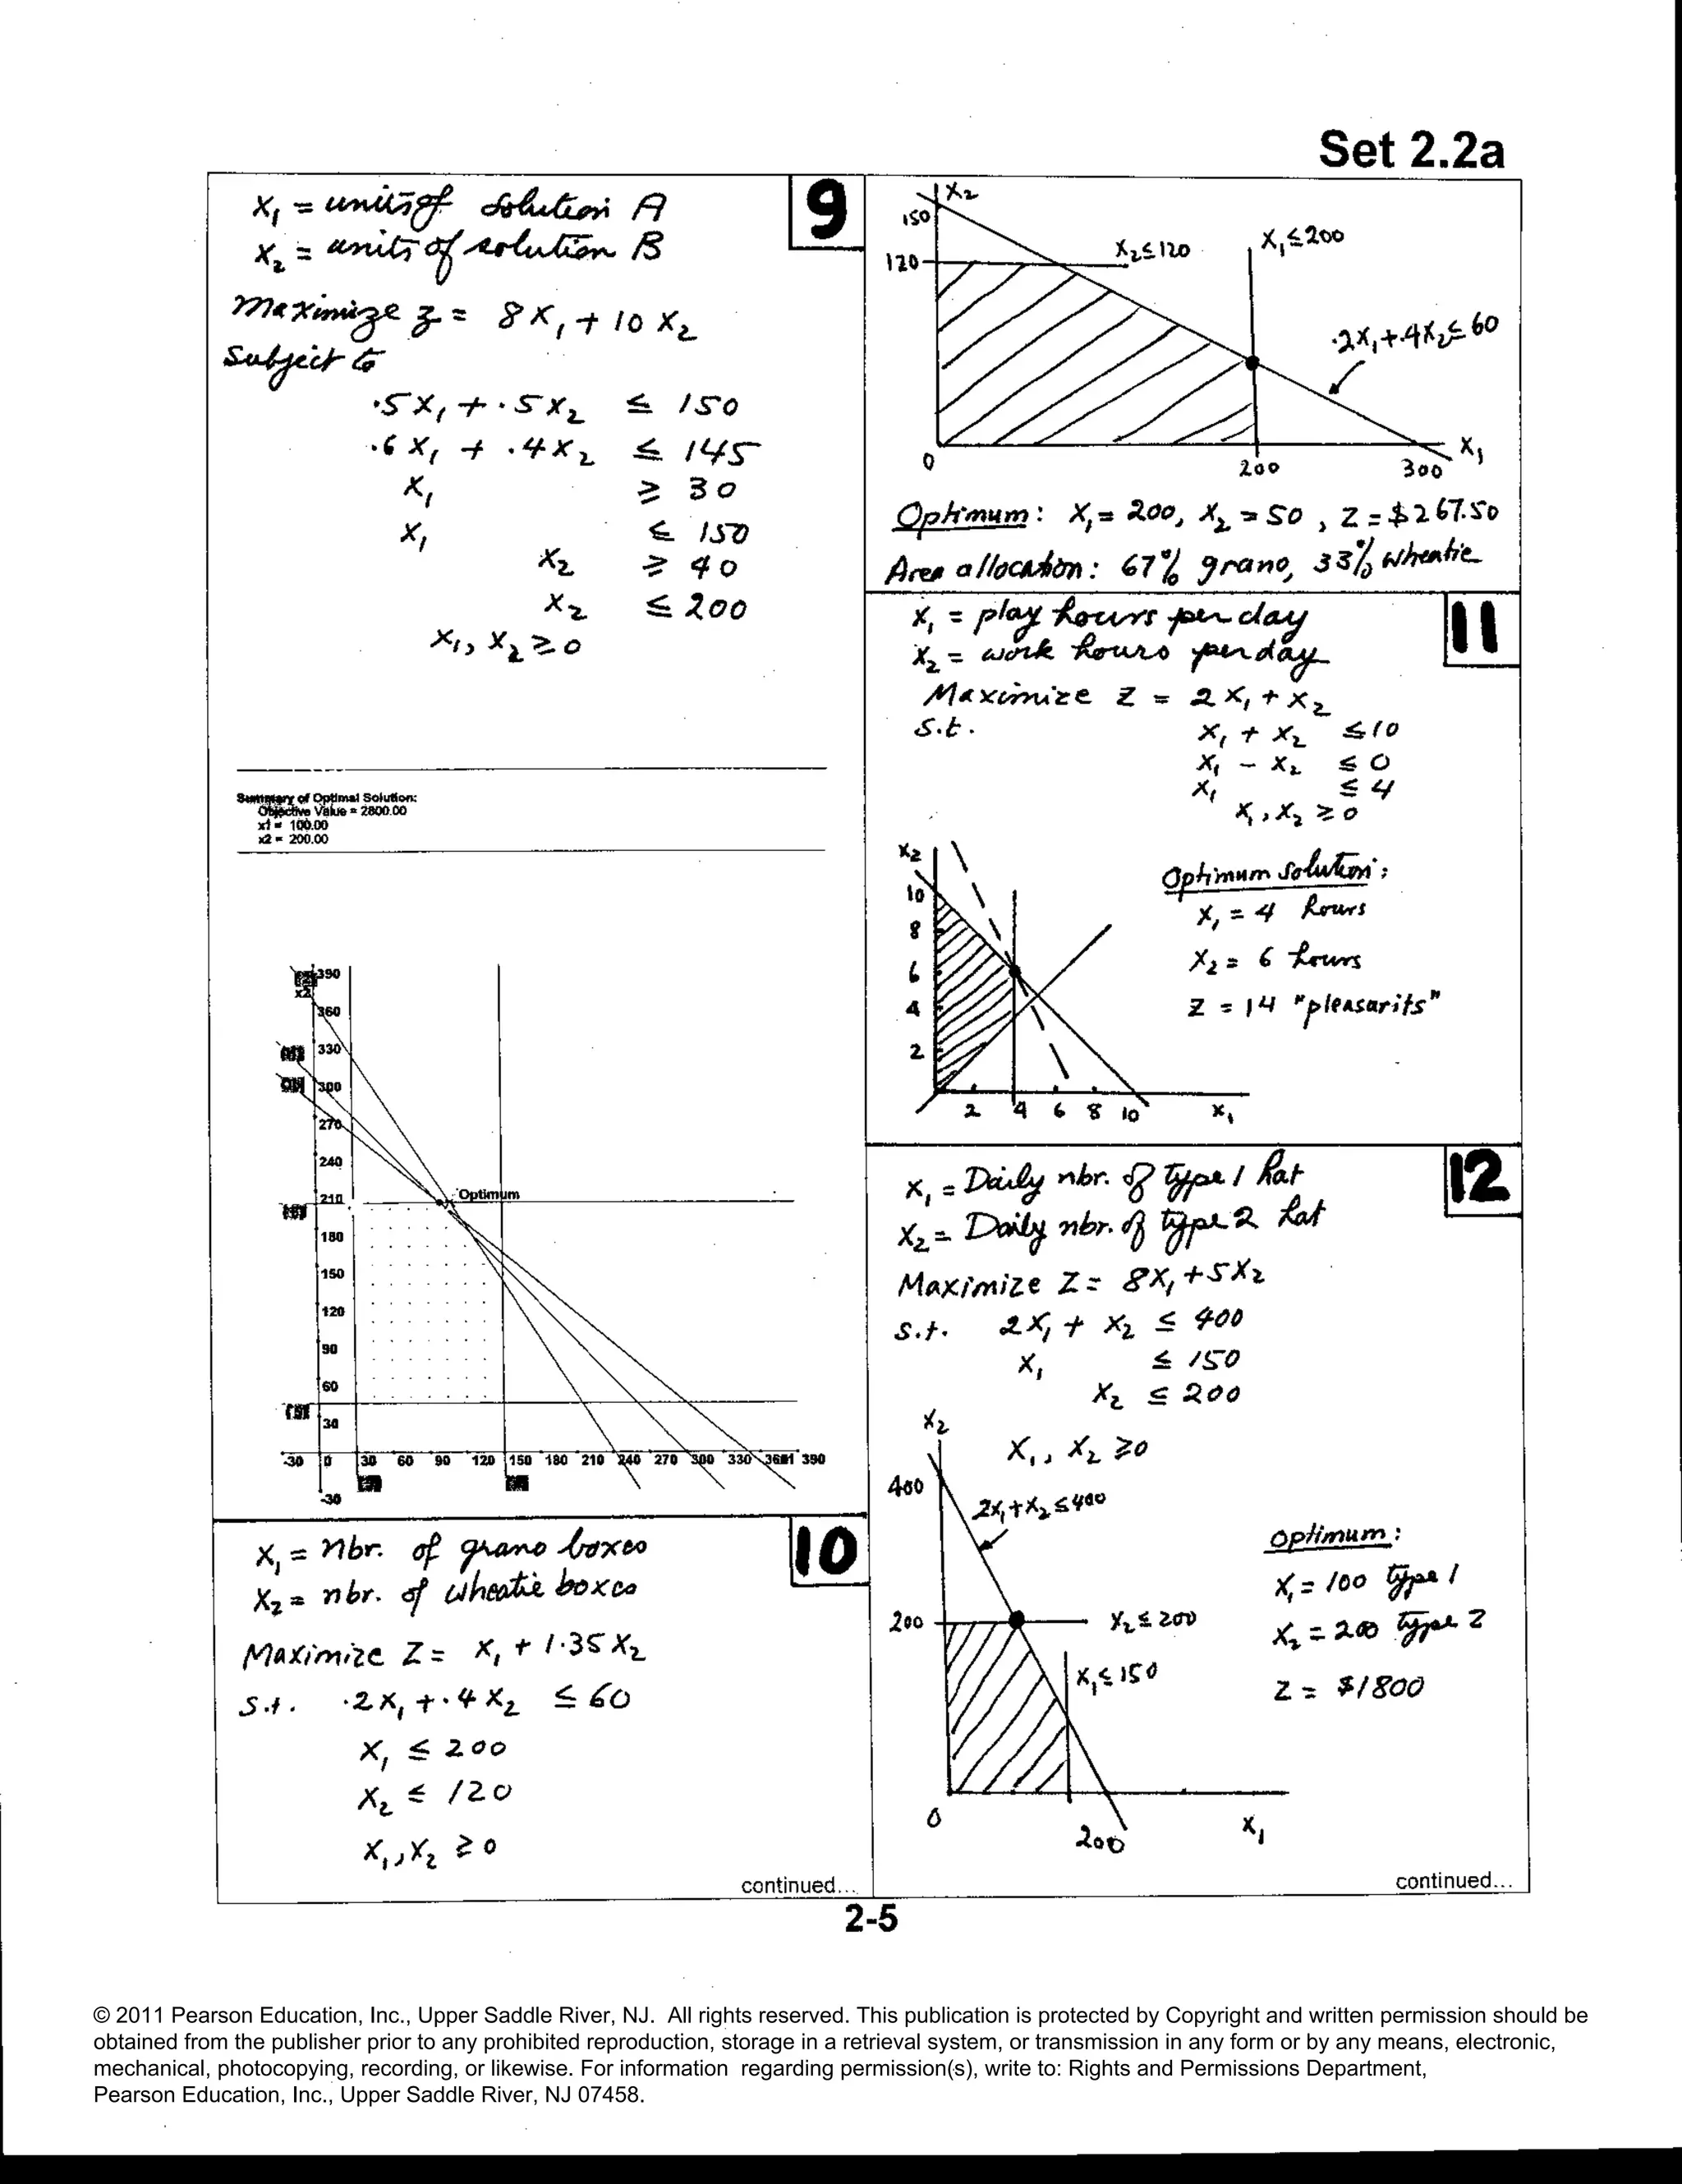 Set 2.2a
9
x₁ = units of solution A
x₂ = units of solution B
Maximize z = 8x₁ + 10x₂
Subject to
.5x₁ + .5x₂ ≤ 150
.6x₁ + .4x₂ ≤ 145
x₁ ≥ 30
x₁ ≤ 150
x₂ ≥ 40
x₂ ≤ 200
x₁, x₂ ≥ 0
Summary of Optimal Solution:
Objective Value = 2800.00
x1 = 100.00
x2 = 200.00
390
x2
360
330
300
270
240
210
Optimum
180
150
120
90
60
30
-30 0 30 60 90 120 150 180 210 240 270 300 330 360 390
-30
10
x₁ = nbr. of grano boxes
x₂ = nbr. of wheatie boxes
Maximize Z = x₁ + 1.35x₂
s.t. .2x₁ + .4x₂ ≤ 60
x₁ ≤ 200
x₂ ≤ 120
x₁, x₂ ≥ 0
continued...
x₂
150
120
x₂ ≤ 120
x₁ ≤ 200
.2x₁ + .4x₂ ≤ 60
0 200 300 x₁
Optimum: x₁ = 200, x₂ = 50, Z = $267.50
Area allocation: 67% grano, 33% wheatie
11
x₁ = play hours per day
x₂ = work hours per day
Maximize Z = 2x₁ + x₂
s.t. x₁ + x₂ ≤ 10
x₁ - x₂ ≤ 0
x₁ ≤ 4
x₁, x₂ ≥ 0
x₂
10
8
6
4
2
2 4 6 8 10 x₁
Optimum solution:
x₁ = 4 hours
x₂ = 6 hours
Z = 14 "pleasurits"
12
x₁ = Daily nbr. of type 1 hat
x₂ = Daily nbr. of type 2 hat
Maximize Z = 8x₁ + 5x₂
s.t. 2x₁ + x₂ ≤ 400
x₁ ≤ 150
x₂ ≤ 200
x₁, x₂ ≥ 0
x₂
400
2x₁ + x₂ ≤ 400
200
x₂ ≤ 200
x₁ ≤ 150
0 200 x₁
Optimum:
x₁ = 100 type 1
x₂ = 200 type 2
Z = $1800
continued...
2-5
© 2011 Pearson Education, Inc., Upper Saddle River, NJ. All rights reserved. This publication is protected by Copyright and written permission should be
obtained from the publisher prior to any prohibited reproduction, storage in a retrieval system, or transmission in any form or by any means, electronic,
mechanical, photocopying, recording, or likewise. For information regarding permission(s), write to: Rights and Permissions Department,
Pearson Education, Inc., Upper Saddle River, NJ 07458.